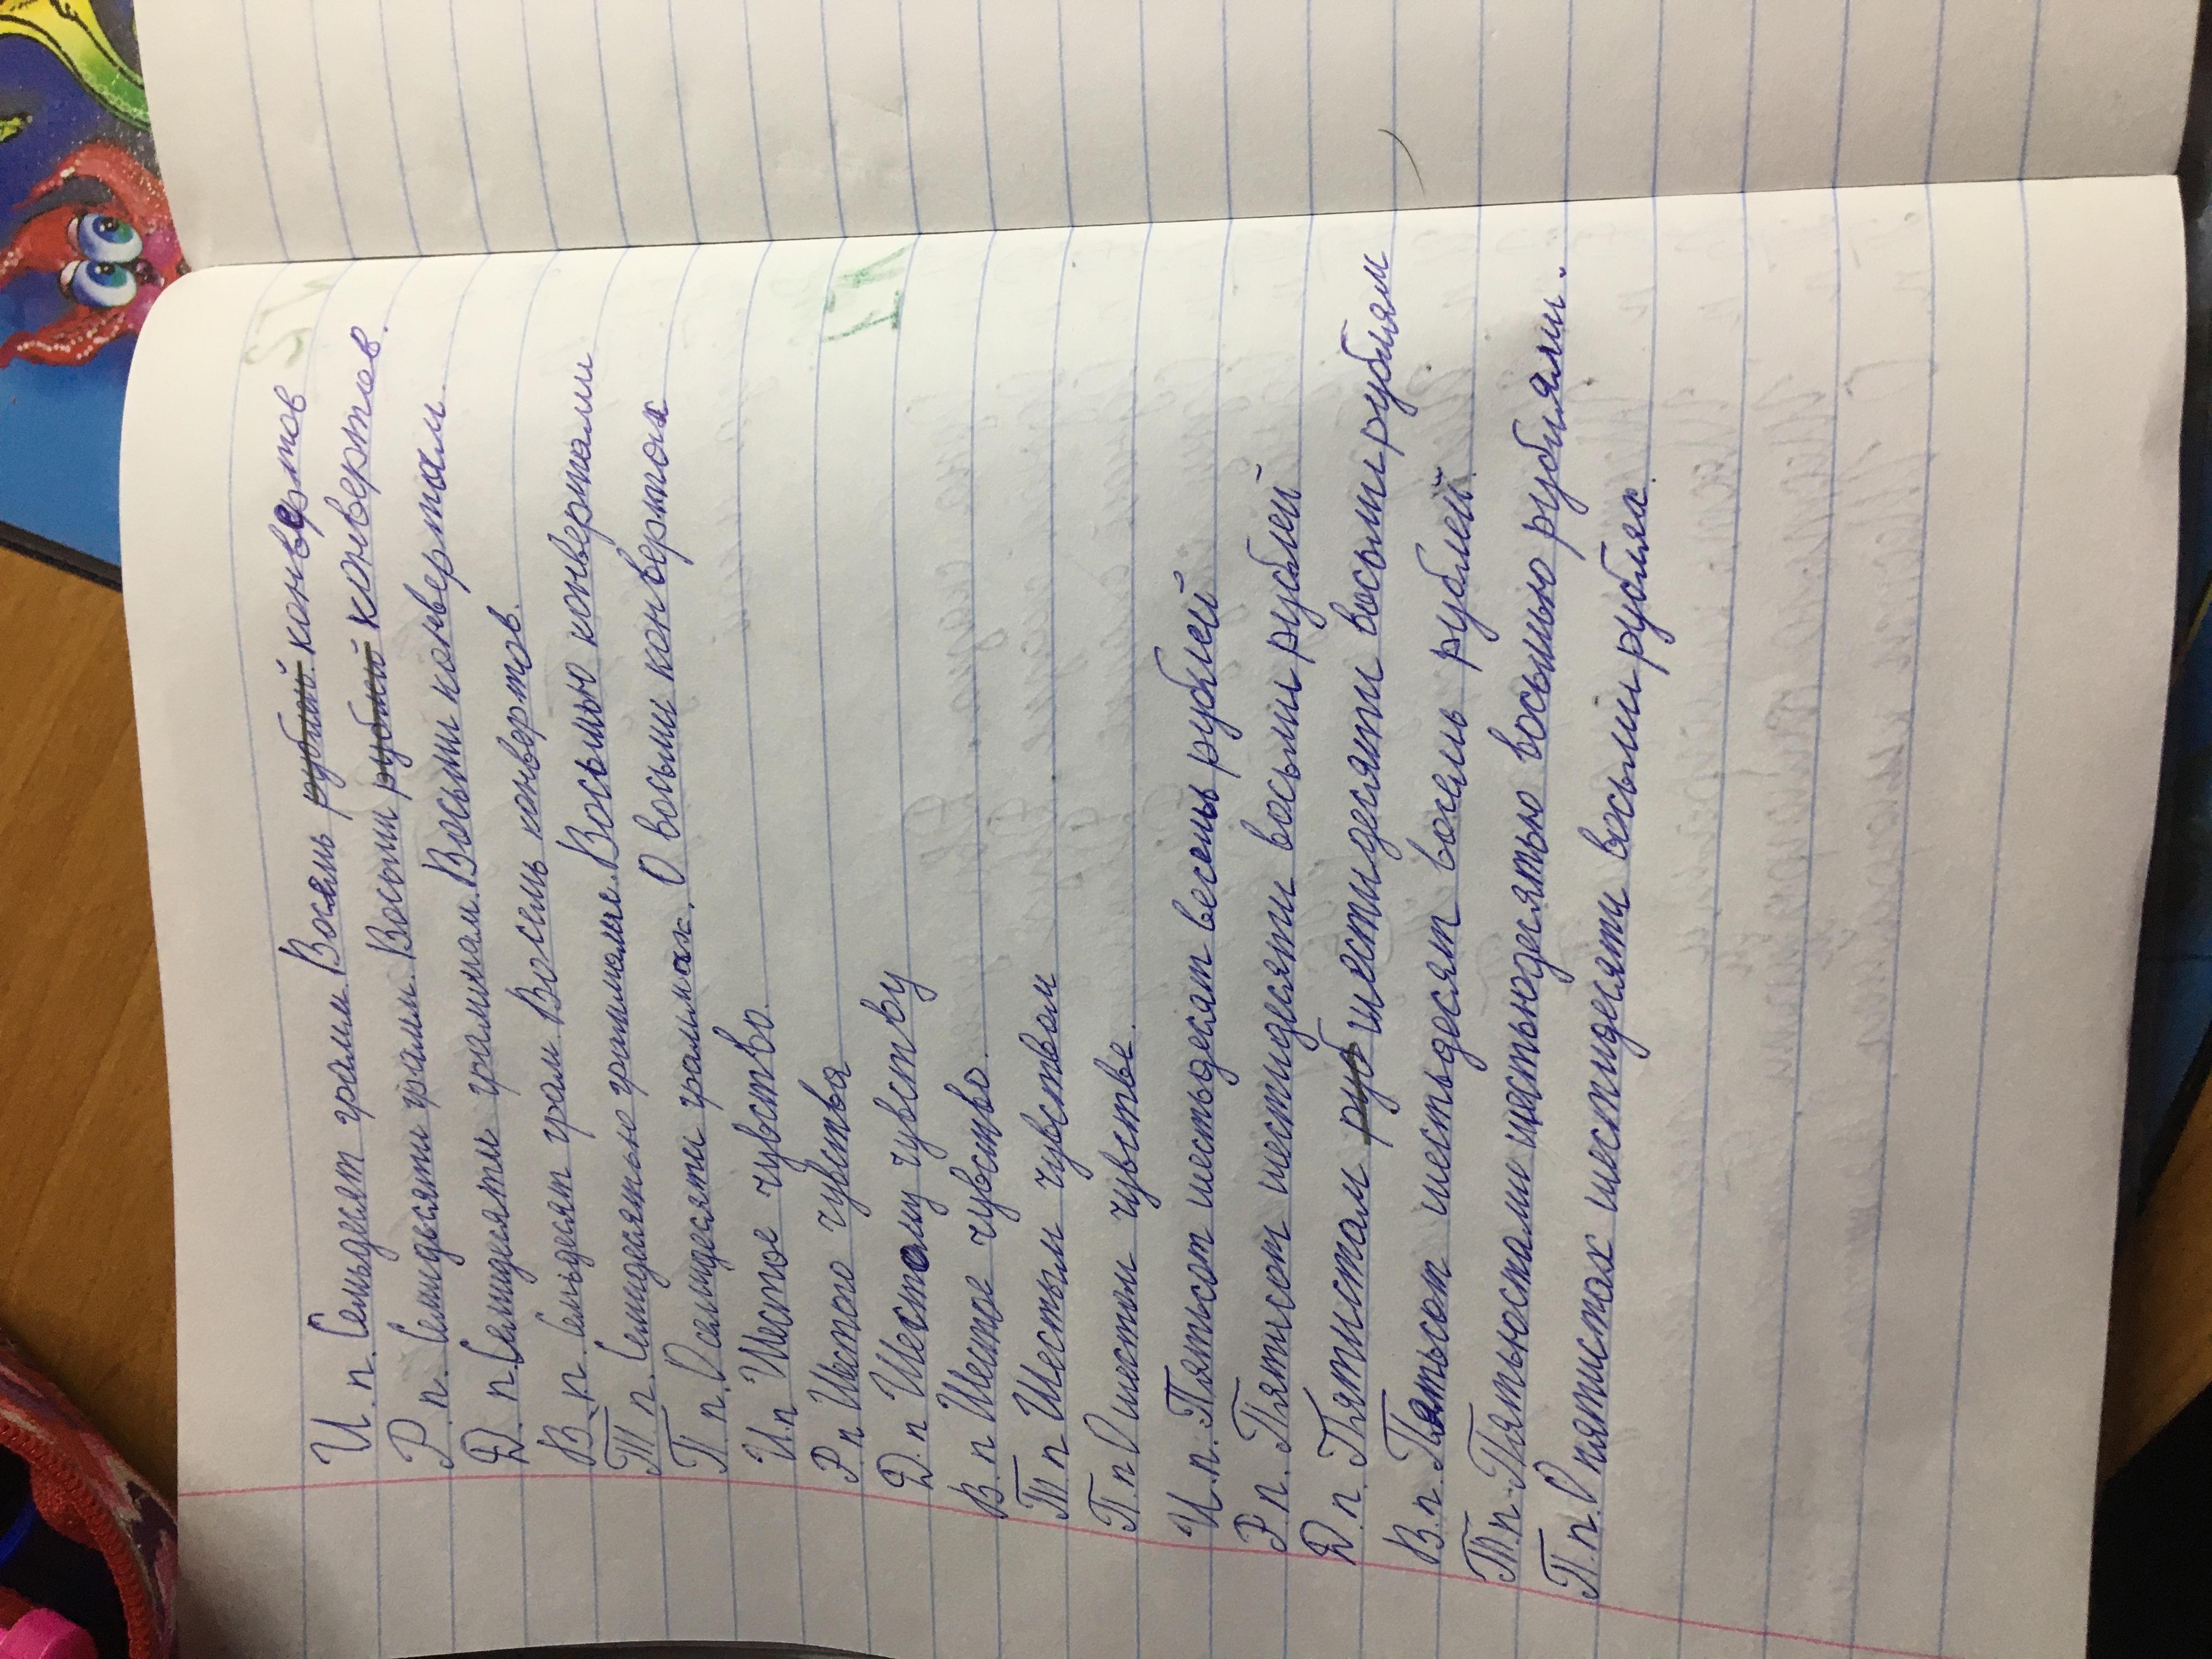 И. п. Семьдесят грамм. Восемь рублей конвертов
Р. п. Семидесяти грамм. Восьми рублей конвертов.
Д. п. Семидесяти граммам. Восьми конвертам.
В. п. Семьдесят грам. Восемь конвертов.
Т. п. Семидесятью граммами. Восьмью конвертами
П. п. О семидесяти граммах. О восьми конвертах
И. п Шестое чувство.
Р. п Шестого чувства
Д. п Шестому чувству
В. п Шестое чувство.
Т. п Шестым чувством
П. п О шестом чувстве.
И. п. Пятьсот шестьдесят весемь рублей
Р. п. Пятисот шестидесяти восьми рублей
Д. п. Пятистам руб шестидесяти восьми рублям
В. п. Пятьсот шестьдесят восемь рублей.
Т. п. Пятьюстами шястьюдесятью восьмью рублями.
П. п. О пятистах шестидесяти восьми рублях.